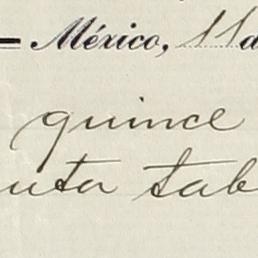 México, 11 d
quince
uta tab